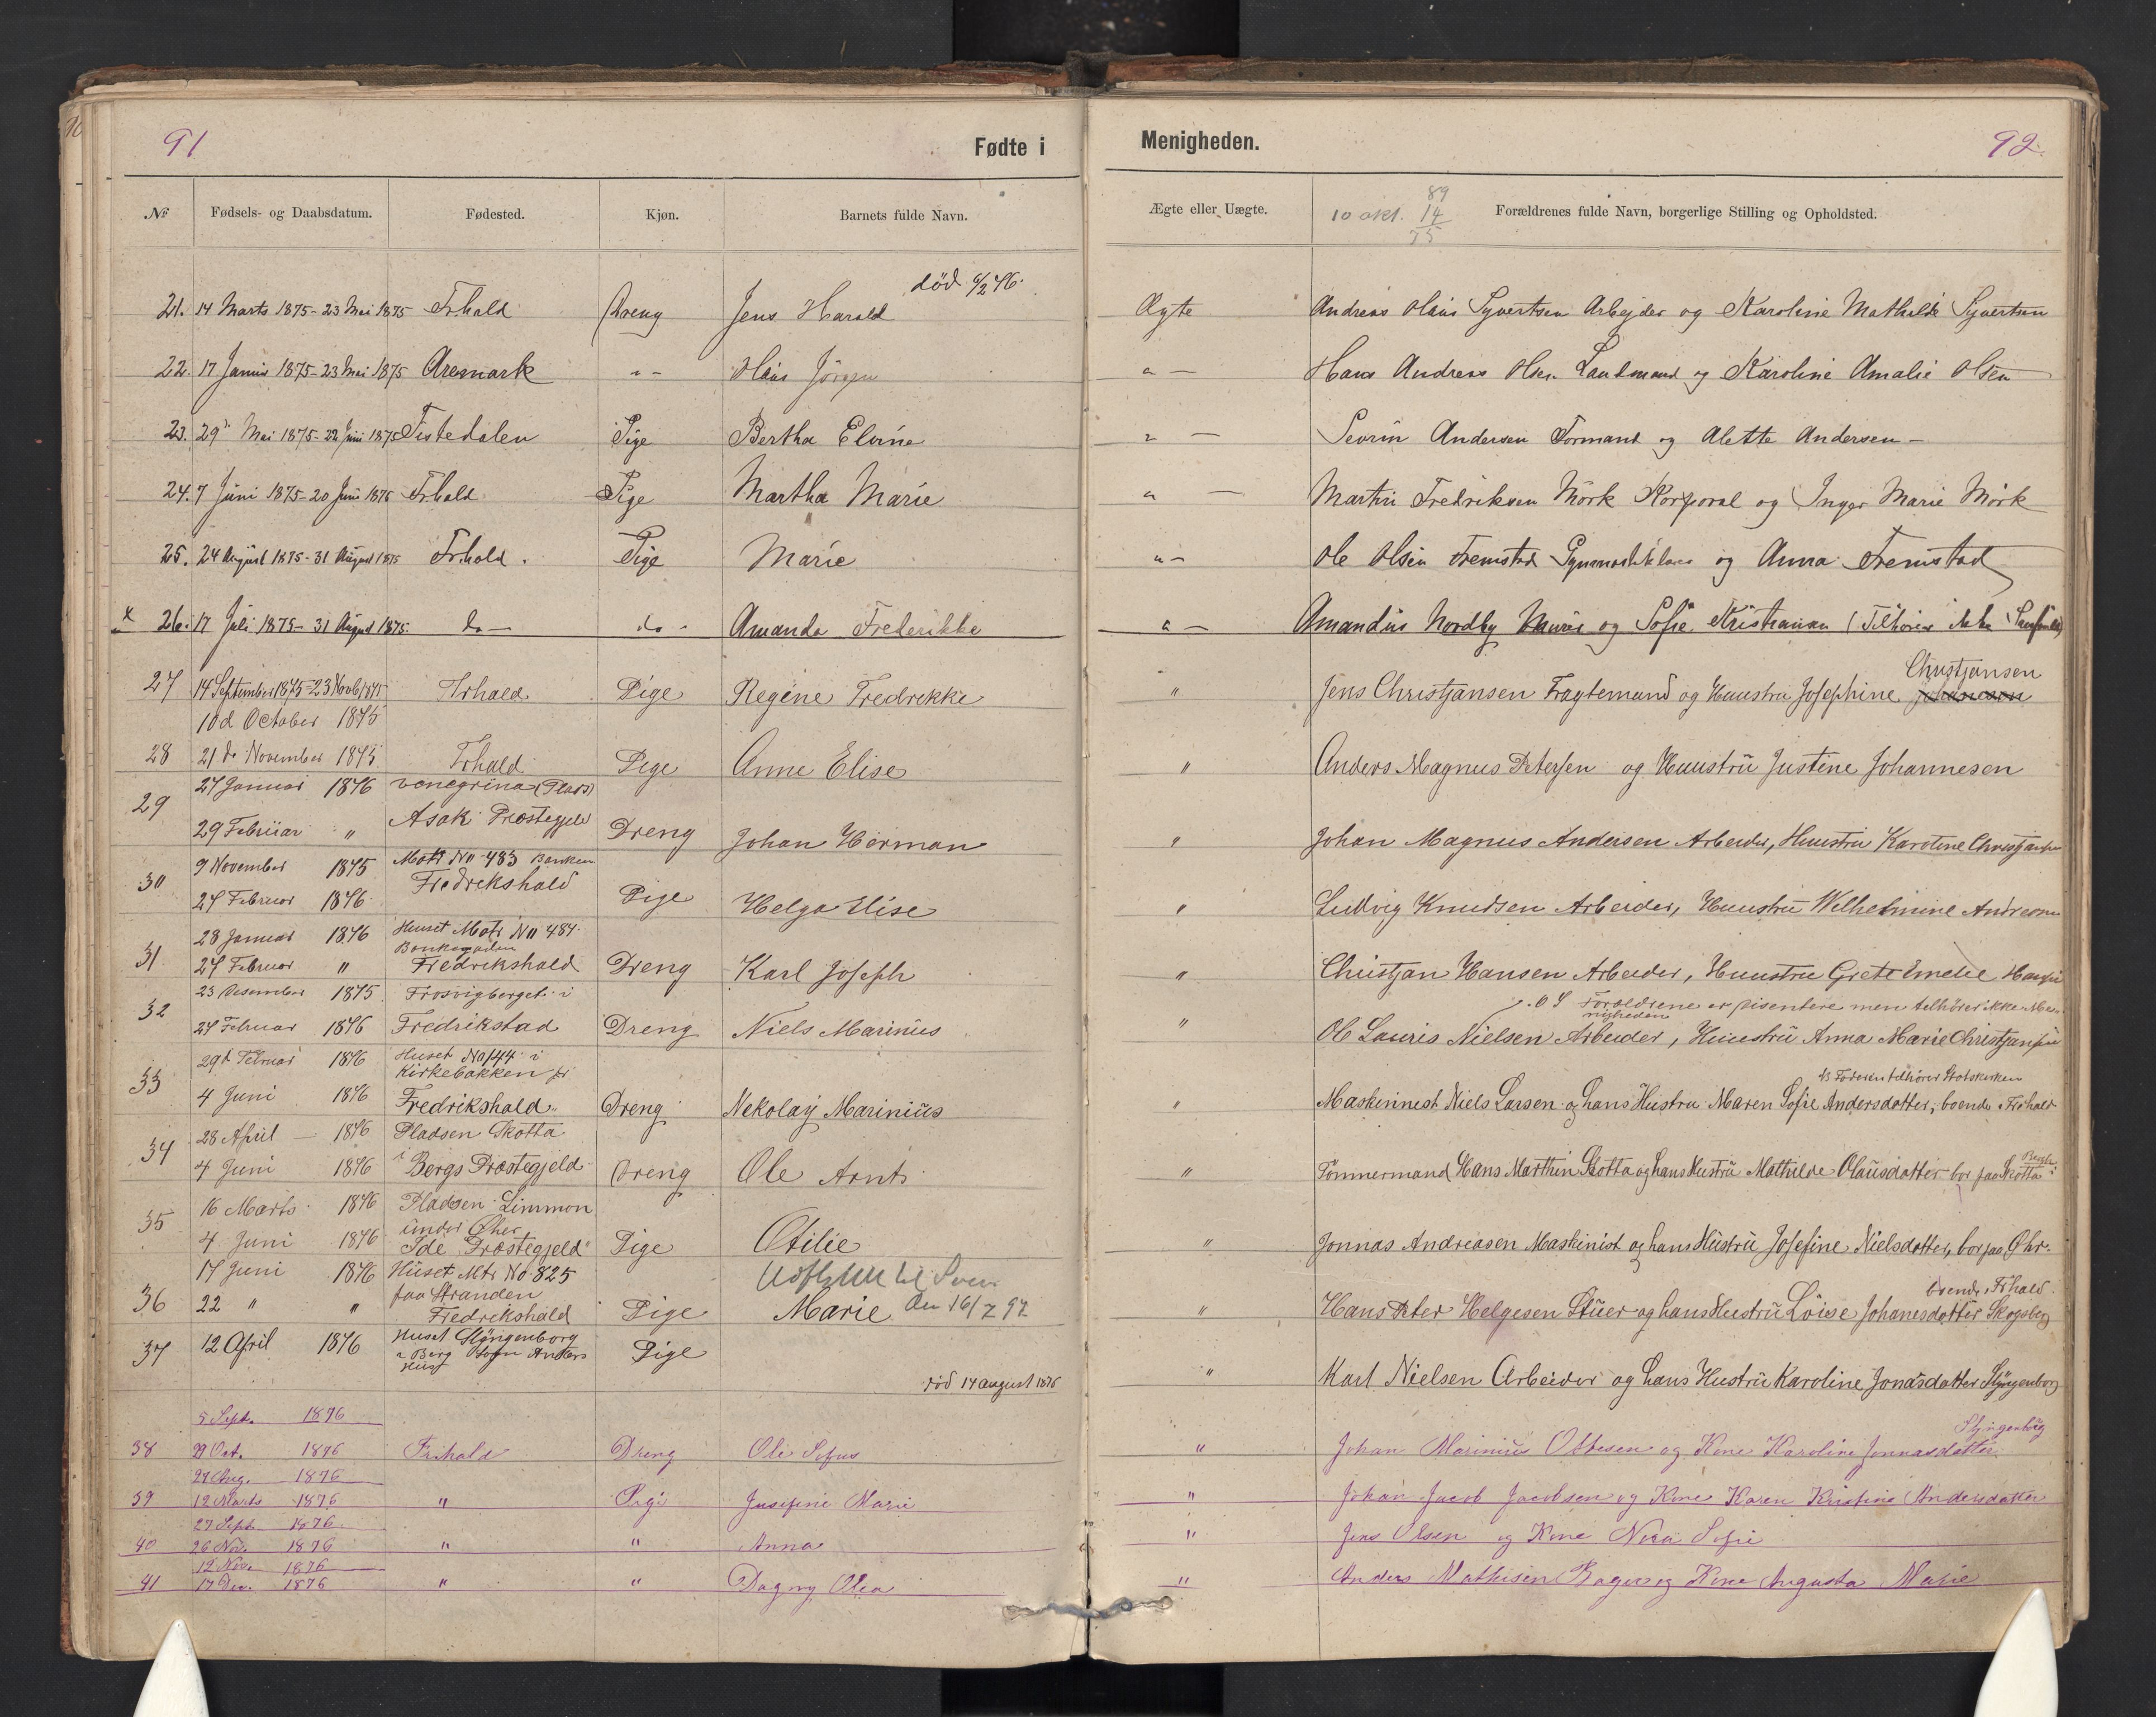 91
Fødte i
Menigheden.
92.
№ Fødsels- og Daabsdatum. Fødested. Kjøn. Barnets fulde Navn. Ægte eller Uægte. Forældrenes fulde Navn, borgerlige Stilling og Opholdsted.
10 okt. 89
14
75
død 6/2 76.
21. 14 Marts 1875 - 23 Mai 1875 Frhald Dreng Jens Harald Ægte Andreas Olaus Syvertsen Arbejder og Karoline Mathilde Syvertsen
22. 17 Januar 1875 - 23 Mai 1875 Aremark " - Jörgen " - Hans Andreas Olsen Landmand og Karoline Amalie Olsen
23. 29 Mai 1875 - 22 Juni 1875 Tistedalen Pige Bertha Elvine " - Sevrin Andersen Formand og Alette Andersen -
24. 7 Juni 1875 - 20 Juni 1875 Frhald Pige Martha Marie " - Martin Fredriksen Mörk Korporal og Inger Marie Mörk
25. 24 August 1875 - 31 August 1875 Frhald. Pige Marie " - Ole Olsen Fremstad og Anna Fremstad
x 26. 17 Juli 1875 - 31 August 1875. do - do - Amanda Frederikke " - Amandus Nordby Murer og Sofie Kristiansen (Tilhører ikke
Christjansen
27 14 September 1875 - 23 Novb 1875 Frhald Pige Regine Fredrekke " Jens Christjansen Fragtemand og Huustru Josephine
10d October 1875
28 21 de November 1875 Frhald Pige Anne Elise " Anders Magnus Petersen og Huustrü Justine Johannesen
27 Januar 1876 venegrina (Plads)
29
29 Februar " Asak Prostegjeld Dreng Johan Herman " Johan Magnus Andersen Arbeider, Huustru Karoline Christjansen
9 November 1875 Matr No 483 Banken
30 27 Februar 1876 Fredrikshald Pige Helga Elise " Ludvig Knudsen Arbeider, Huustrü Wilhelmine Andresen
28 Januar 1876 Huset Matr No 484
Bankegaden
31 27 Februar " Fredrikshald Dreng Karl Joseph " Christjan Hansen Arbeider, Huustru Grete Emelie Hansen
23 Desember 1875 Frosvigberget i
Foroldrene er disentere men tilhører ikke Me
nigheden
32 27 Februar 1876 Fredrikstad Dreng Niels Marinüs " Ole Lauris Nielsen Arbeider, Huustrü Anna Marie Christjansen
29d Februar 1876 Huset No 144 i
Kirkebakken
Faderen tilhører Statskirken
33 4 Juni 1876 Fredrikshald Dreng Nekolaj Marinius " Maskinnist Niels Larsen og hans Hustru Maren Sofie Andersdatter, boende i Frhald
28 April - 1876 Pladsen Skotta
34 4 Juni 1876 i Bergs Prostegjeld Dreng Ole Arnt " Tömmermand Hans Marthin Skotta og hans Hustrü Mathilde Olausdatter bor paa Skotta i
16 Marts 1876 Pladsen Limmon
under Øher
35 4 Juni 1876 Ide Prostegjeld Pige Otilie " Jonnas Andreasen Maskinist og hans Hustrü Josefine Nielsdatter, bor paa Øhr.
17 Juni 1876 Huset Mtr No 825
paa Stranden
boende i Frhald.
36 22 " " Fredrikshald Pige Marie den 16/7 97 " Hans Peter Helgesen Stuer og hans Hustrü Lovise Johanesdatter Skogsberg
37 12 April 1876 Huset Slyngenborg
i Berg Sogn Anders
Hust
Pige " Karl Nielsen Arbeider og hans Hustrü Karoline Jonasdatter Slyngenborg
død 14 august 1876
5 Sept. 1876
Slyngenborg
38 29 Oct. 1876 Frhald Dreng Ole Sofus " Johan Marinius Ottesen og Kone Karoline Jonnasdatter.
27 Aug. 1876
39 12 Marts 1876 " Pige Josefine Marie " Johan Jacob Jacobsen og Kone Karen Kristine Andersdatter
27 Sept. 1876
40 26 Nov. 1876 " " Anna " Jens Olsen og Kone Sofie
12 Nov. 1876
41 17 Dec. 1876 " " Dagny Olea " Anders Mathisen Bager og Kone Augusta Marie